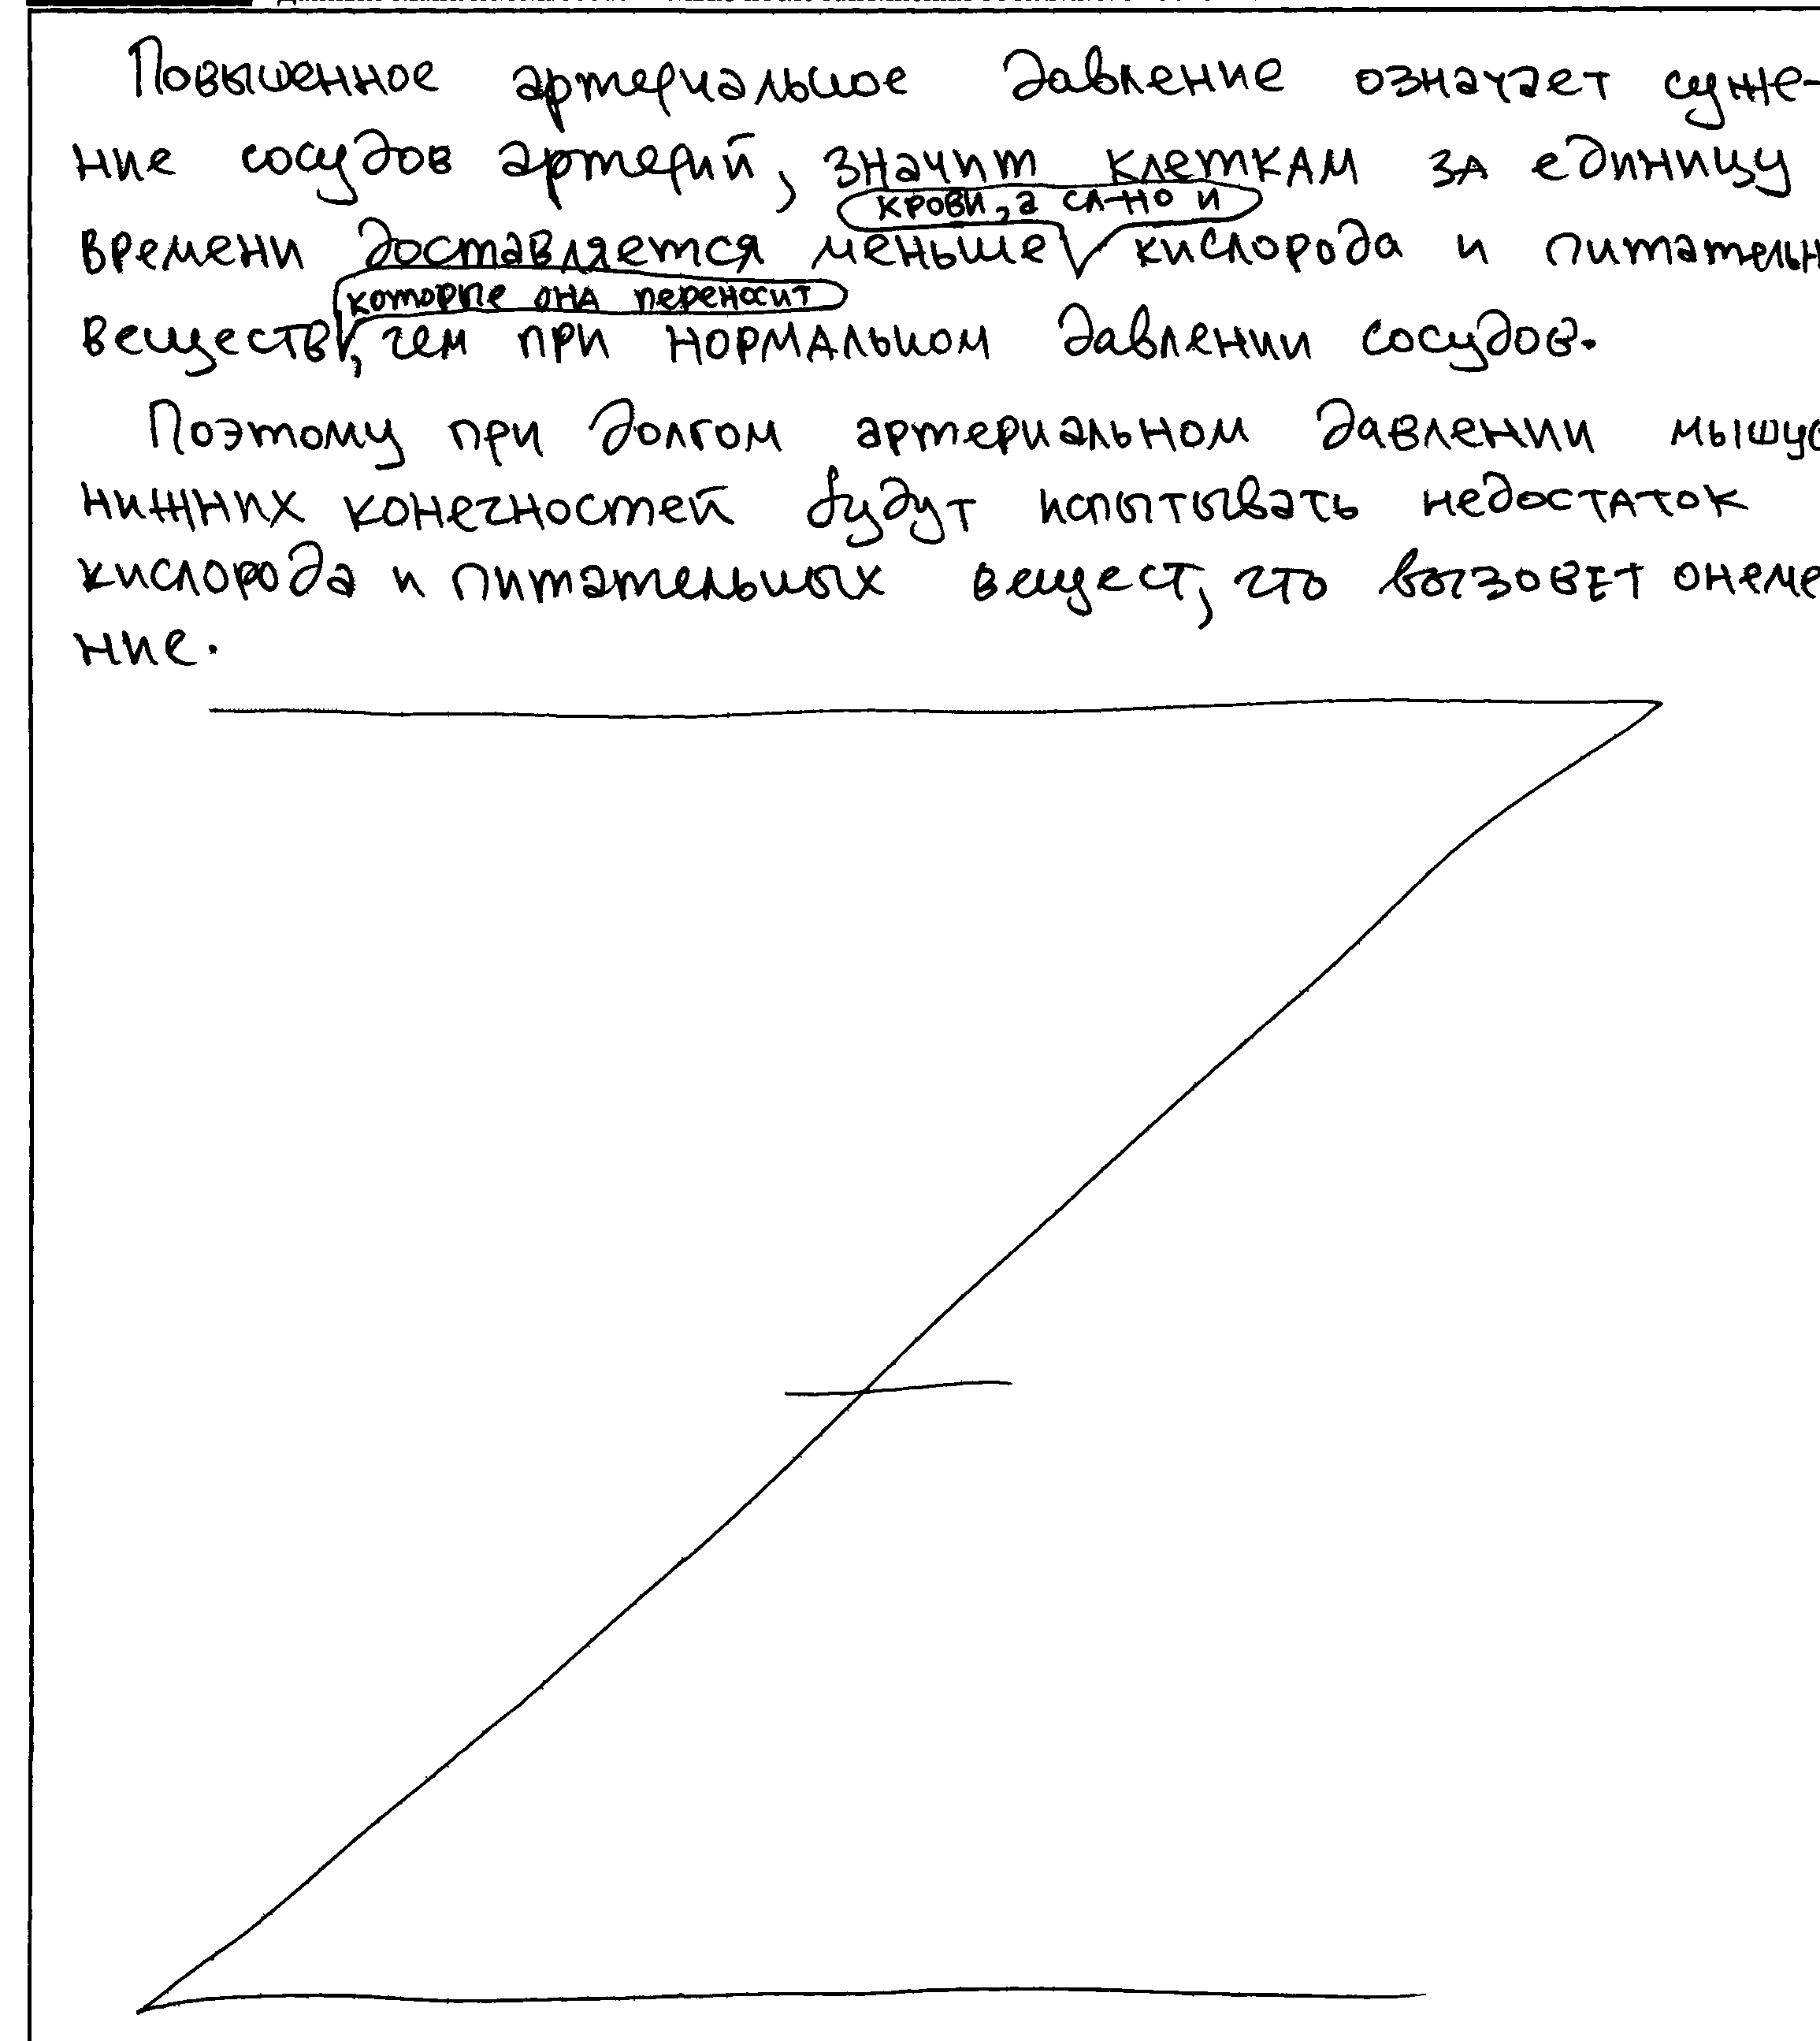 Повышенное артериальное давление означает суже-
ние сосудов артерий, значит клеткам за единицу
крови, а сл-но и
времени доставляется меньше кислорода и питательн
которые она переносит
веществ, чем при нормальном давлении сосудов.
Поэтому при долгом артериальном давлении мышц
нижних конечностей будут испытывать недостаток
кислорода и питательных вещест, что вызовет онеме
ние.